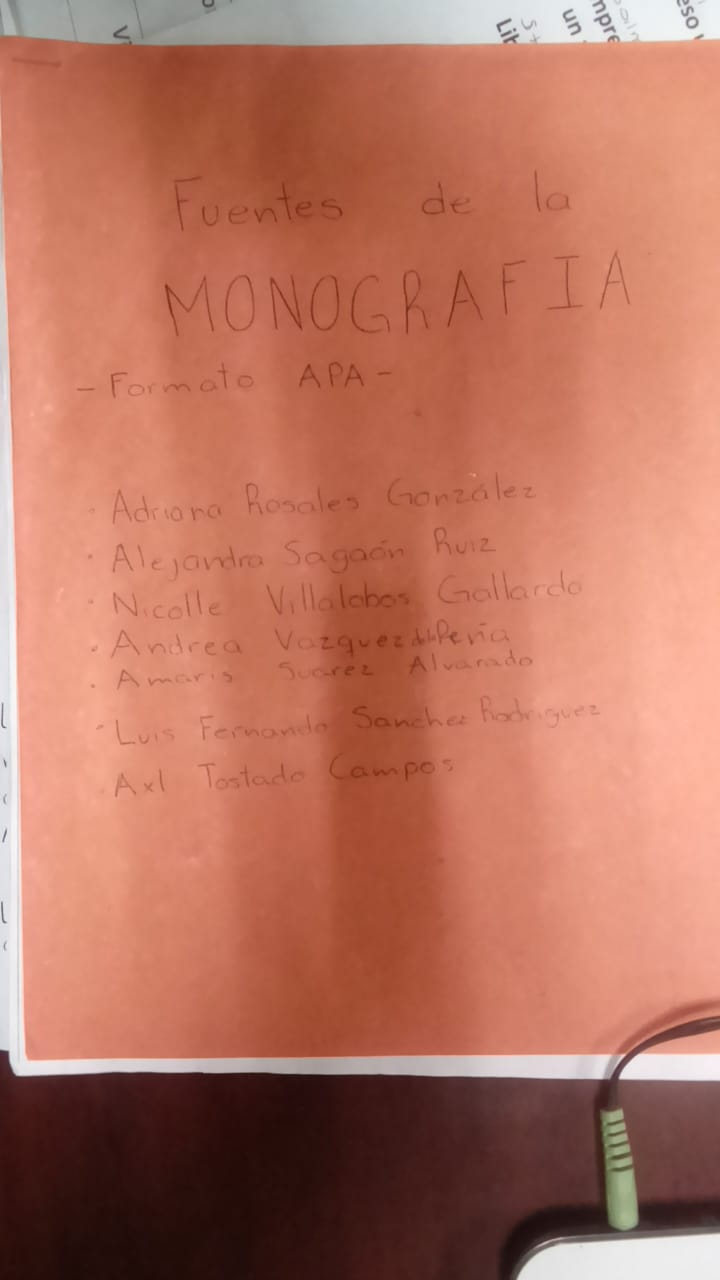 Fuentes de la
MONOGRAFIA
- Formato APA -
· Adriana Rosales González
· Alejandra Sagaón Ruiz
· Nicolle Villalobos Gallardo
· Andrea Vazquez de la Peña
· Amaris Suarez Alvarado
· Luis Fernando Sanchez Rodriguez
· Axl Tostado Campos
eso
mpre
un
Lib